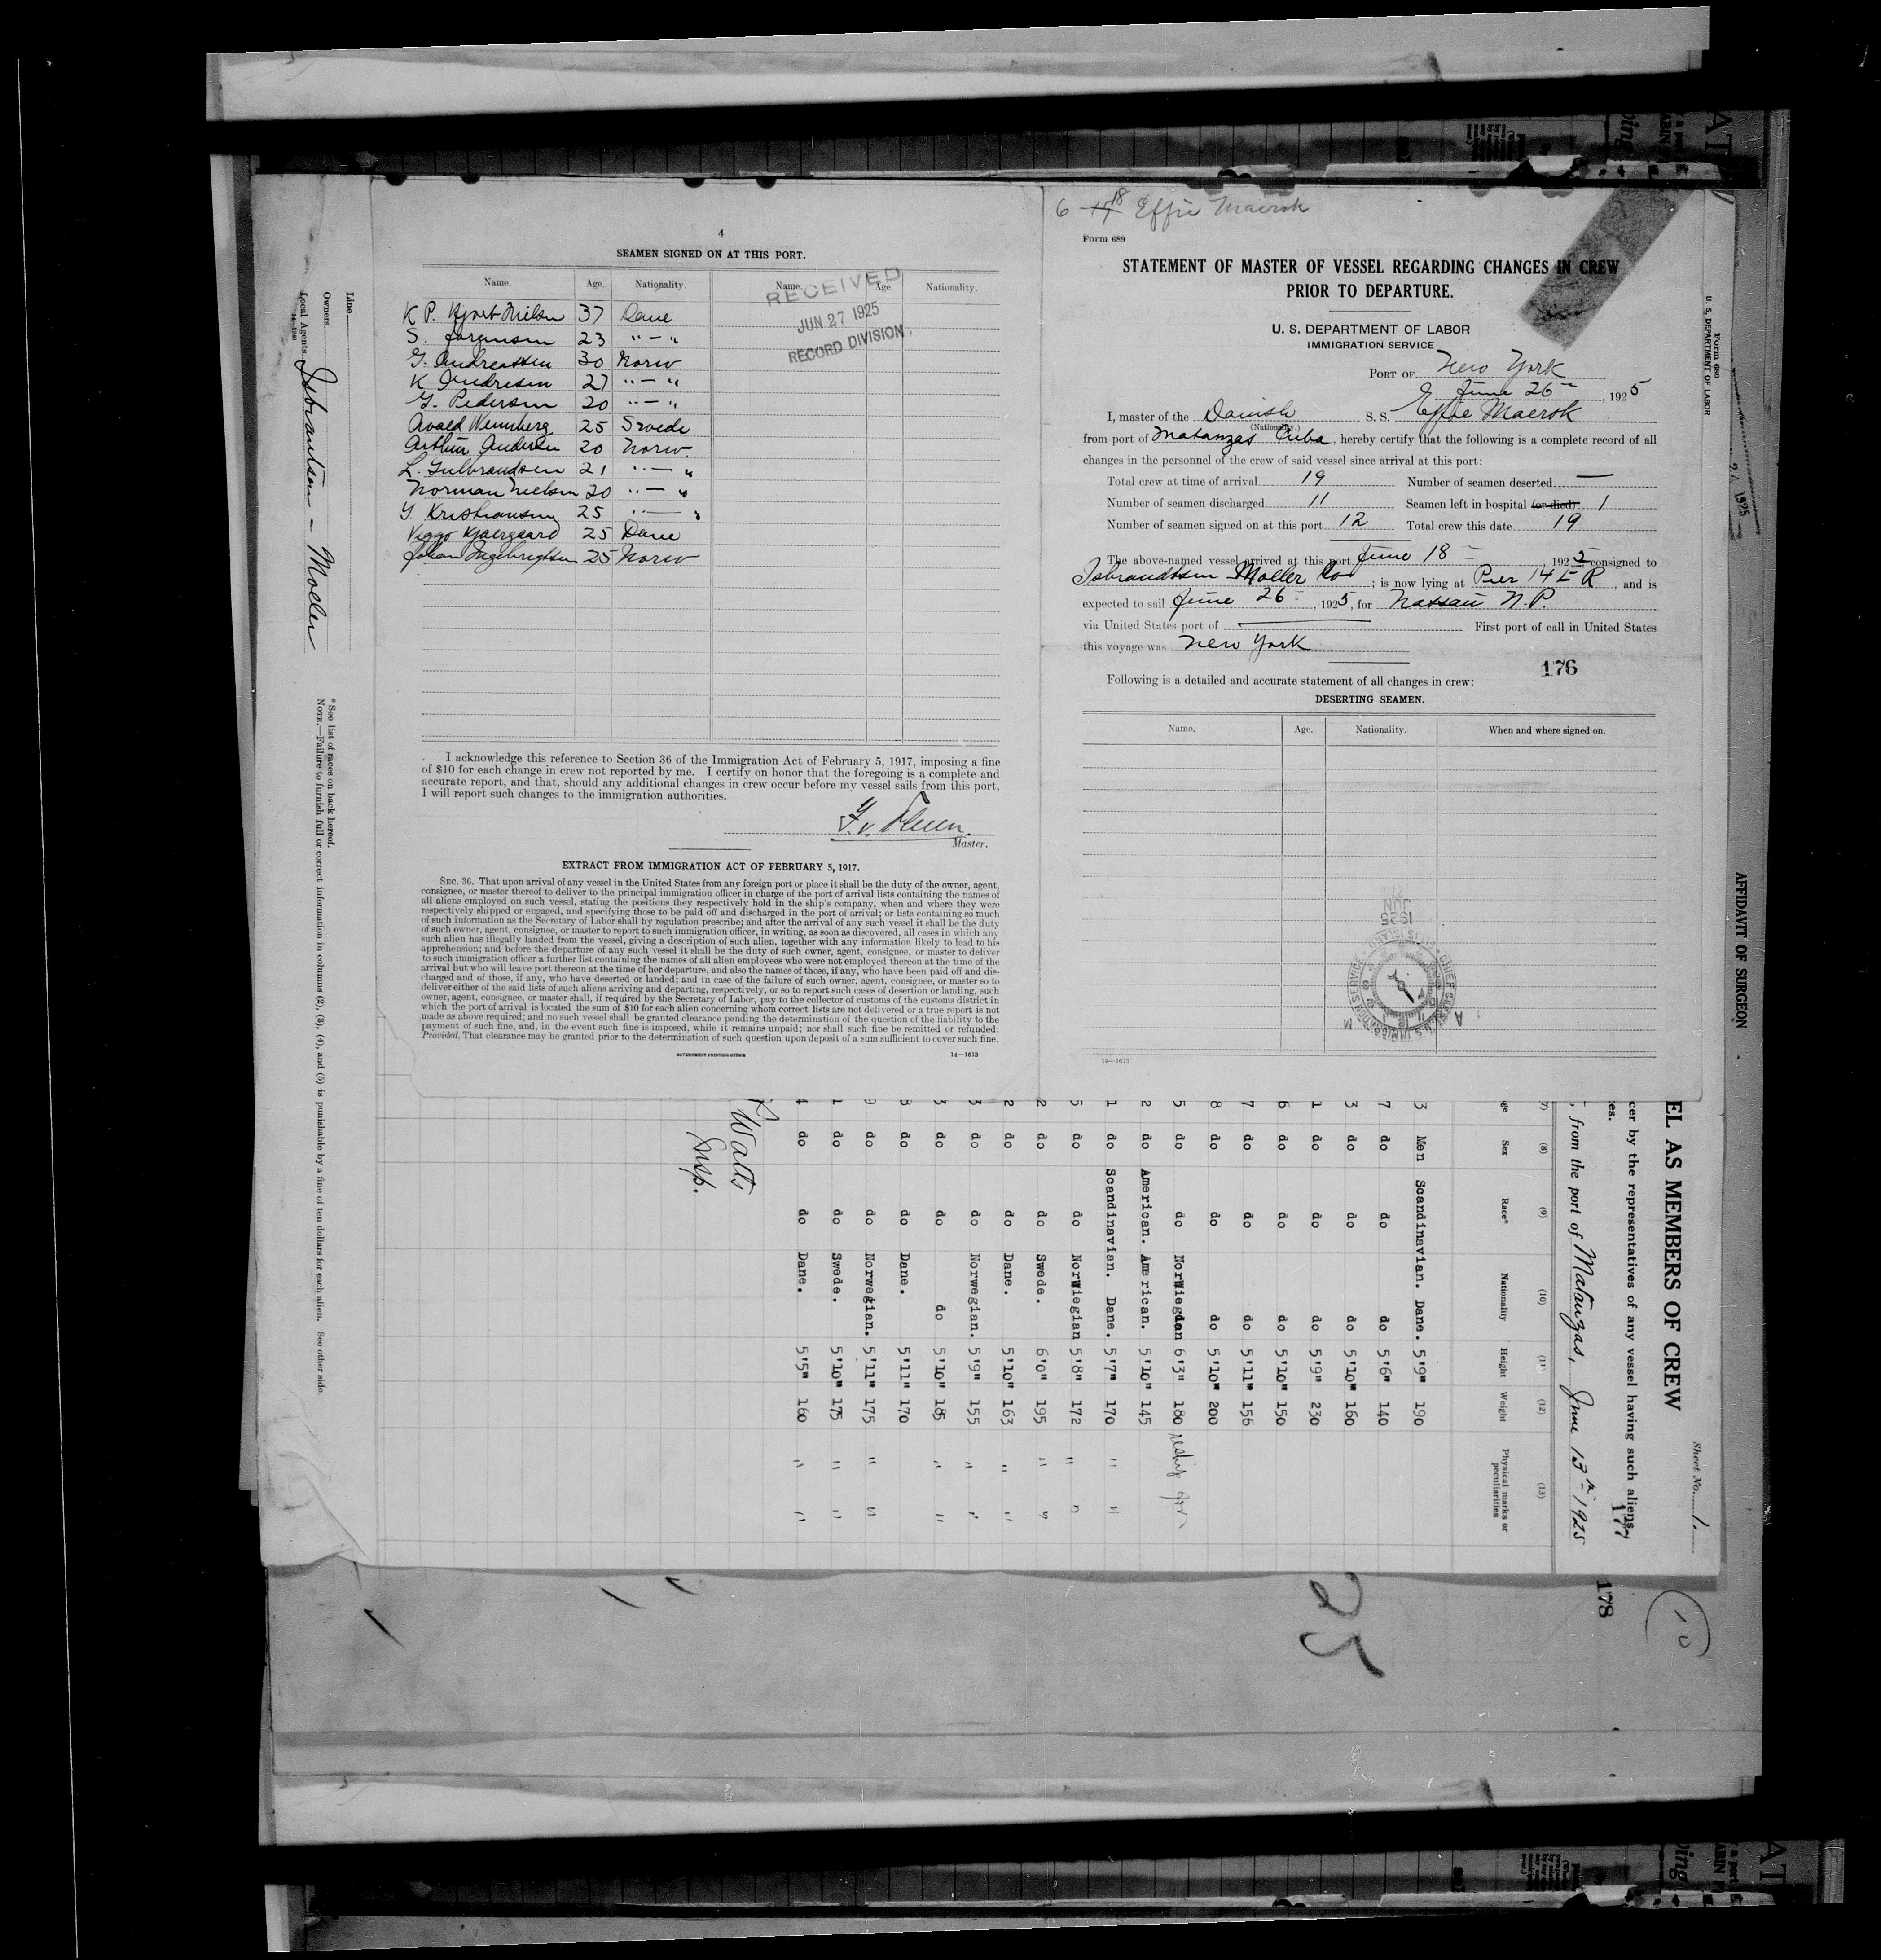 4
SEAMEN SIGNED ON AT THIS PORT.
Name. Age. Nationality. Name. Age. Nationality.
RECEIVED
JUN 27 1925
RECORD DIVISION
K P. Hjort Nielsen 37 Dane
S. Jörgensen 23 " — "
G. Andreassen 30 Norw
K Andresen 27 " — "
G. Pedersen 20 " — "
Avald Wennberg 25 Swede
Arthur Andersen 20 Norw.
L. Gulbrandsen 21 " — "
Norman Nielsen 20 " — "
Y Kristiansen 25 " — "
Viggo Kjaergaard 25 Dane
Johan Ingebrigtsen 25 Norw
I acknowledge this reference to Section 36 of the Immigration Act of February 5, 1917, imposing a fine
of $10 for each change in crew not reported by me. I certify on honor that the foregoing is a complete and
accurate report, and that, should any additional changes in crew occur before my vessel sails from this port,
I will report such changes to the immigration authorities.
Master.
EXTRACT FROM IMMIGRATION ACT OF FEBRUARY 5, 1917.
SEC. 36. That upon arrival of any vessel in the United States from any foreign port or place it shall be the duty of the owner, agent,
consignee, or master thereof to deliver to the principal immigration officer in charge of the port of arrival lists containing the names of
all aliens employed on such vessel, stating the positions they respectively hold in the ship's company, when and where they were
respectively shipped or engaged, and specifying those to be paid off and discharged in the port of arrival; or lists containing so much
of such information as the Secretary of Labor shall by regulation prescribe; and after the arrival of any such vessel it shall be the duty
of such owner, agent, consignee, or master to report to such immigration officer, in writing, as soon as discovered, all cases in which any
such alien has illegally landed from the vessel, giving a description of such alien, together with any information likely to lead to his
apprehension; and before the departure of any such vessel it shall be the duty of such owner, agent, consignee, or master to deliver
to such immigration officer a further list containing the names of all alien employees who were not employed thereon at the time of the
arrival but who will leave port thereon at the time of her departure, and also the names of those, if any, who have been paid off and dis-
charged and of those, if any, who have deserted or landed; and in case of the failure of such owner, agent, consignee, or master so to
deliver either of the said lists of such aliens arriving and departing, respectively, or so to report such cases of desertion or landing, such
owner, agent, consignee, or master shall, if required by the Secretary of Labor, pay to the collector of customs of the customs district in
which the port of arrival is located the sum of $10 for each alien concerning whom correct lists are not delivered or a true report is not
made as above required; and no such vessel shall be granted clearance pending the determination of the question of the liability to the
payment of such fine, and, in the event such fine is imposed, while it remains unpaid; nor shall such fine be remitted or refunded:
Provided, That clearance may be granted prior to the determination of such question upon deposit of a sum sufficient to cover such fine.
GOVERNMENT PRINTING OFFICE 14—1613
6 - 18 Effie Maersk
Form 689
STATEMENT OF MASTER OF VESSEL REGARDING CHANGES IN CREW
PRIOR TO DEPARTURE.
U. S. DEPARTMENT OF LABOR
IMMIGRATION SERVICE
PORT OF New York
June 26, 1925
I, master of the Danish S. S. Effie Maersk
(Nationality.)
from port of Matanzas Cuba, hereby certify that the following is a complete record of all
changes in the personnel of the crew of said vessel since arrival at this port:
Total crew at time of arrival 19 Number of seamen deserted —
Number of seamen discharged 11 Seamen left in hospital (or died) 1
Number of seamen signed on at this port 12 Total crew this date 19
The above-named vessel arrived at this port June 18 1925 consigned to
Isbrandtsen Moller Co; is now lying at Pier 14 E R, and is
expected to sail June 26, 1925, for Nassau N.P.
via United States port of — First port of call in United States
this voyage was New York
176
Following is a detailed and accurate statement of all changes in crew:
DESERTING SEAMEN.
Name. Age. Nationality. When and where signed on.
1925
JUN
27
14—1613
Line
Owners
Local Agents Isbrantsen - Moeller
14—1240
*See list of races on back hereof.
NOTE.—Failure to furnish full or correct information in columns (2), (3), (4), and (5) is punishable by a fine of ten dollars for each alien. See other side.
Form 680
U. S. DEPARTMENT OF LABOR
AFFIDAVIT OF SURGEON
Sheet No. 1.
EL AS MEMBERS OF CREW
cer by the representatives of any vessel having such aliens
177
es.
, from the port of Matanzas, June 13th 1925
(7) (8) (9) (10) (11) (12) (13)
ge Sex Race* Nationality Height Weight Physical marks or peculiarities
3 Men Scandinavian. Dane. 5'9" 190
7 do do do 5'6" 140
3 do do do 5'10" 160
1 do do do 5'9" 230
6 do do do 5'10" 150
7 do do do 5'11" 156
8 do do do 5'10" 200
5 do do Norwiegdan 6'3" 180
2 do American. American. 5'10" 145
1 do Scandinavian. Dane. 5'7" 170 " "
5 do do Norwiegian 5'8" 172 " "
2 do do Swede. 6'0" 195 " "
2 do do Dane. 5'10" 163 " "
3 do do Norwegian. 5'9" 155 " "
3 do do do 5'10" 185 " "
8 do do Dane. 5'11" 170
9 do do Norwegian. 5'11" 175 " "
1 do do Swede. 5'10" 175 " "
4 do do Dane. 5'5" 160 " "
Watts
Insp.
178
10
25